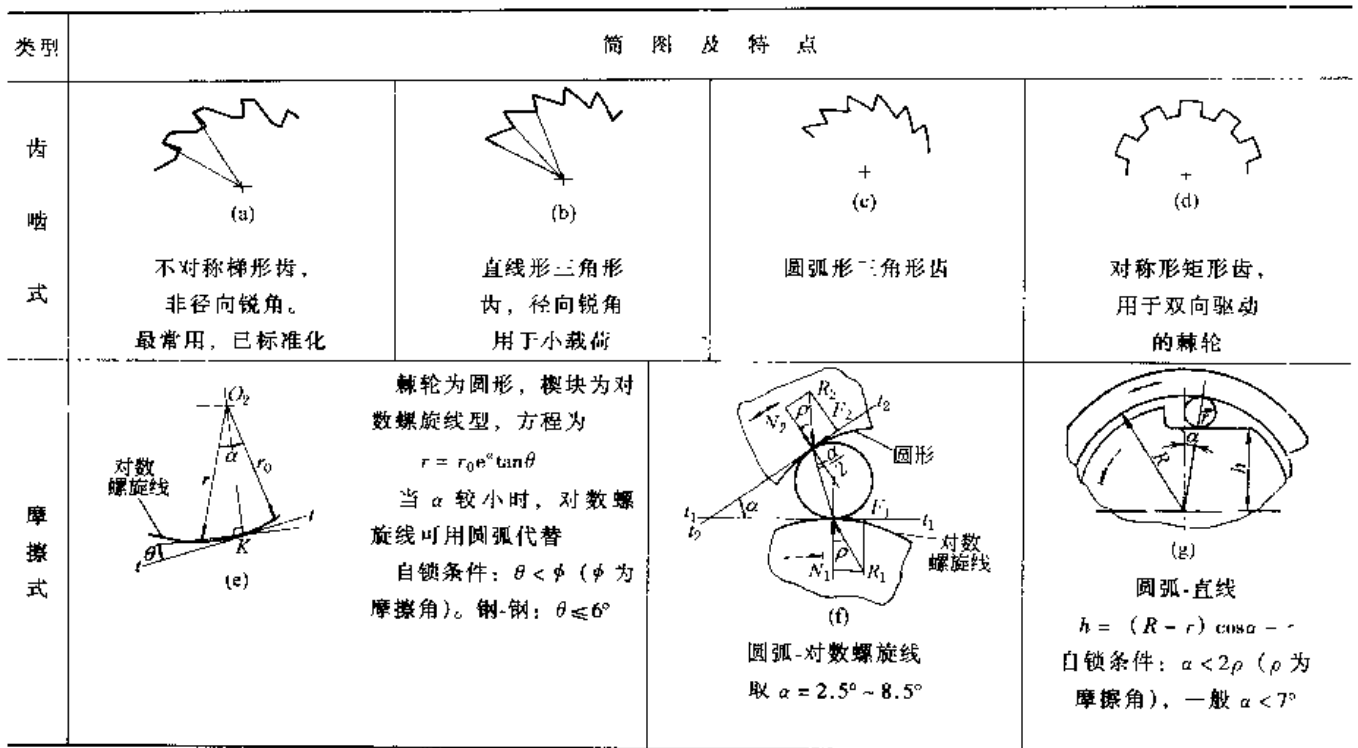 类型
简图及特点
齿啮式
(a)
不对称梯形齿，
非径向锐角。
最常用，已标准化
(b)
直线形三角形
齿，径向锐角
用于小载荷
(c)
圆弧形三角形齿
(d)
对称形矩形齿，
用于双向驱动
的棘轮
摩擦式
O₂
α
r
r₀
对数
螺旋线
t
θ
K
t
(e)
棘轮为圆形，楔块为对
数螺旋线型，方程为
r = r₀e^α tanθ
当 α 较小时，对数螺
旋线可用圆弧代替
自锁条件：θ < ϕ（ϕ 为
摩擦角）。钢-钢：θ⩽6°
R₂
N₂
ρ
F₂
t₂
圆形
α/2
α
t₁
t₂
F₁
t₁
对数
螺旋线
ρ
N₁
R₁
(f)
圆弧-对数螺旋线
取 α = 2.5° ~ 8.5°
r
α
R
h
(g)
圆弧-直线
h = （R - r）cosα -
自锁条件：α < 2ρ（ρ 为
摩擦角），一般 α < 7°